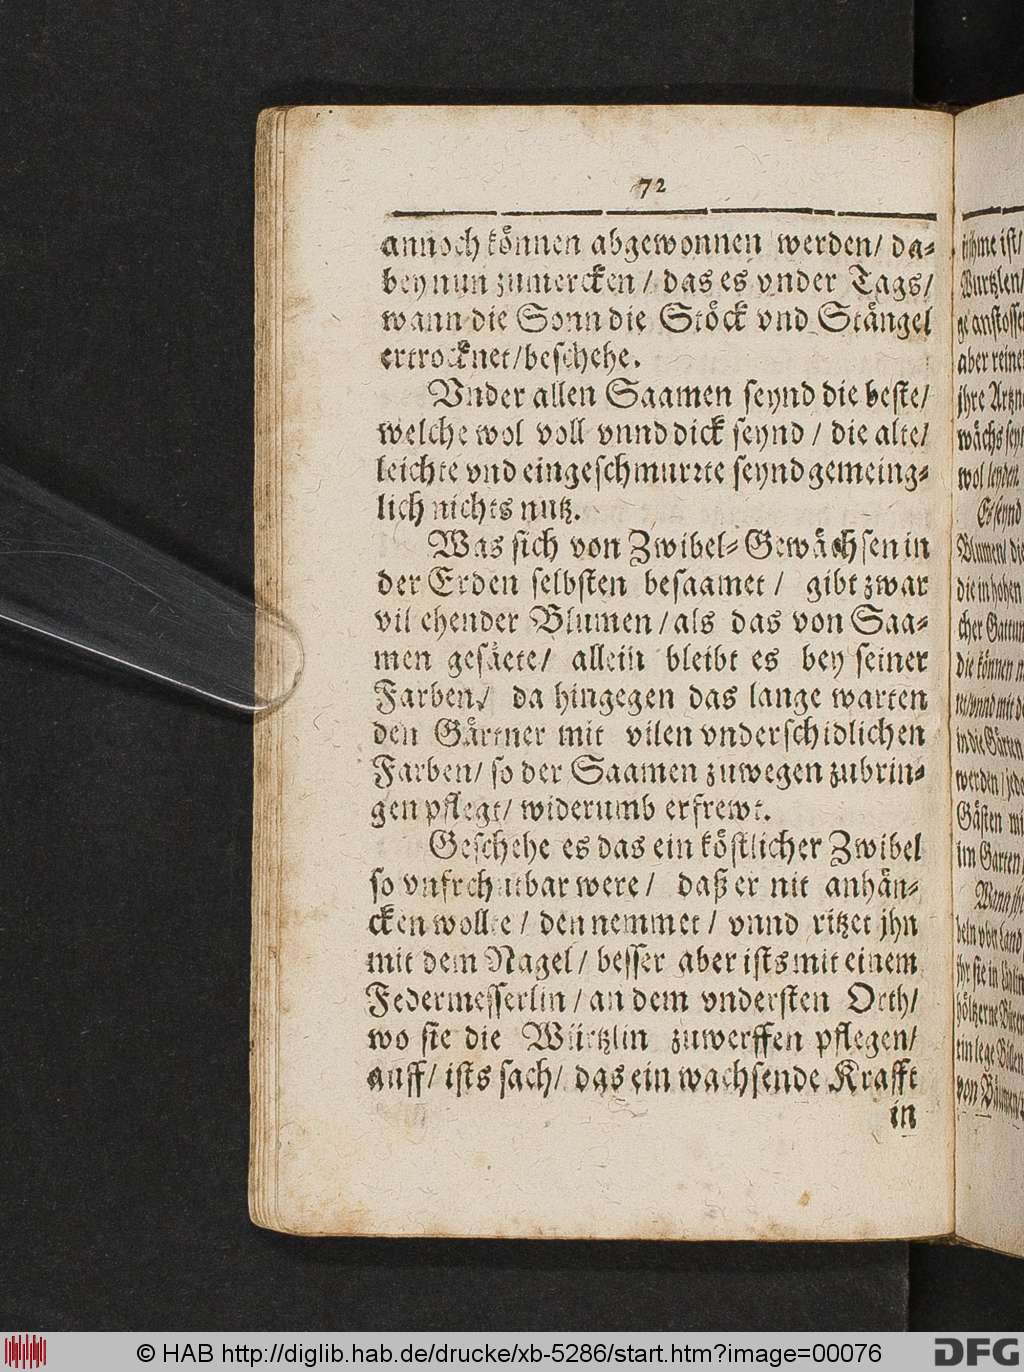 72
annoch können abgewonnen werden/ da-
bey nun zumercken/ das es vnder Tags/
wann die Sonn die Stöck vnd Stängel
ertrocknet/beschehe.
Vnder allen Saamen seynd die beste/
welche wol voll vnnd dick seynd/ die alte/
leichte vnd eingeschmurrte seynd gemeing-
lich nichts nutz.
Was sich von Zwibel-Gewächsen in
der Erden selbsten besaamet/ gibt zwar
vil ehender Blumen/als das von Saa-
men gesäete/ allein bleibt es bey seiner
Farben/ da hingegen das lange warten
den Gärtner mit vilen vnderschidlichen
Farben/ so der Saamen zuwegen zubrin-
gen pflegt/ widerumb erfrewt.
Geschehe es das ein köstlicher Zwibel
so vnfrchutbar were/ daß er nit anhän-
cken wollte/ den nemmet/ vnnd ritzet jhn
mit dem Nagel/ besser aber ists mit einem
Federmesserlin/ an dem vndersten Orth/
wo sie die Würtzlin zuwerffen pflegen/
auff/ ists sach/ das ein wachsende Krafft
in
ist/
Wurtzlen/
aber reine
jhre Artzn
wol leyden.
Es seynd
Blumen/ die
die in hohen
cher Gattun
die können
in die Gärten
werden/ jede
Gästen mi
im Garten/
Wann jh
von Land
jhr sie in
von Bäumen/
© HAB http://diglib.hab.de/drucke/xb-5286/start.htm?image=00076
DFG